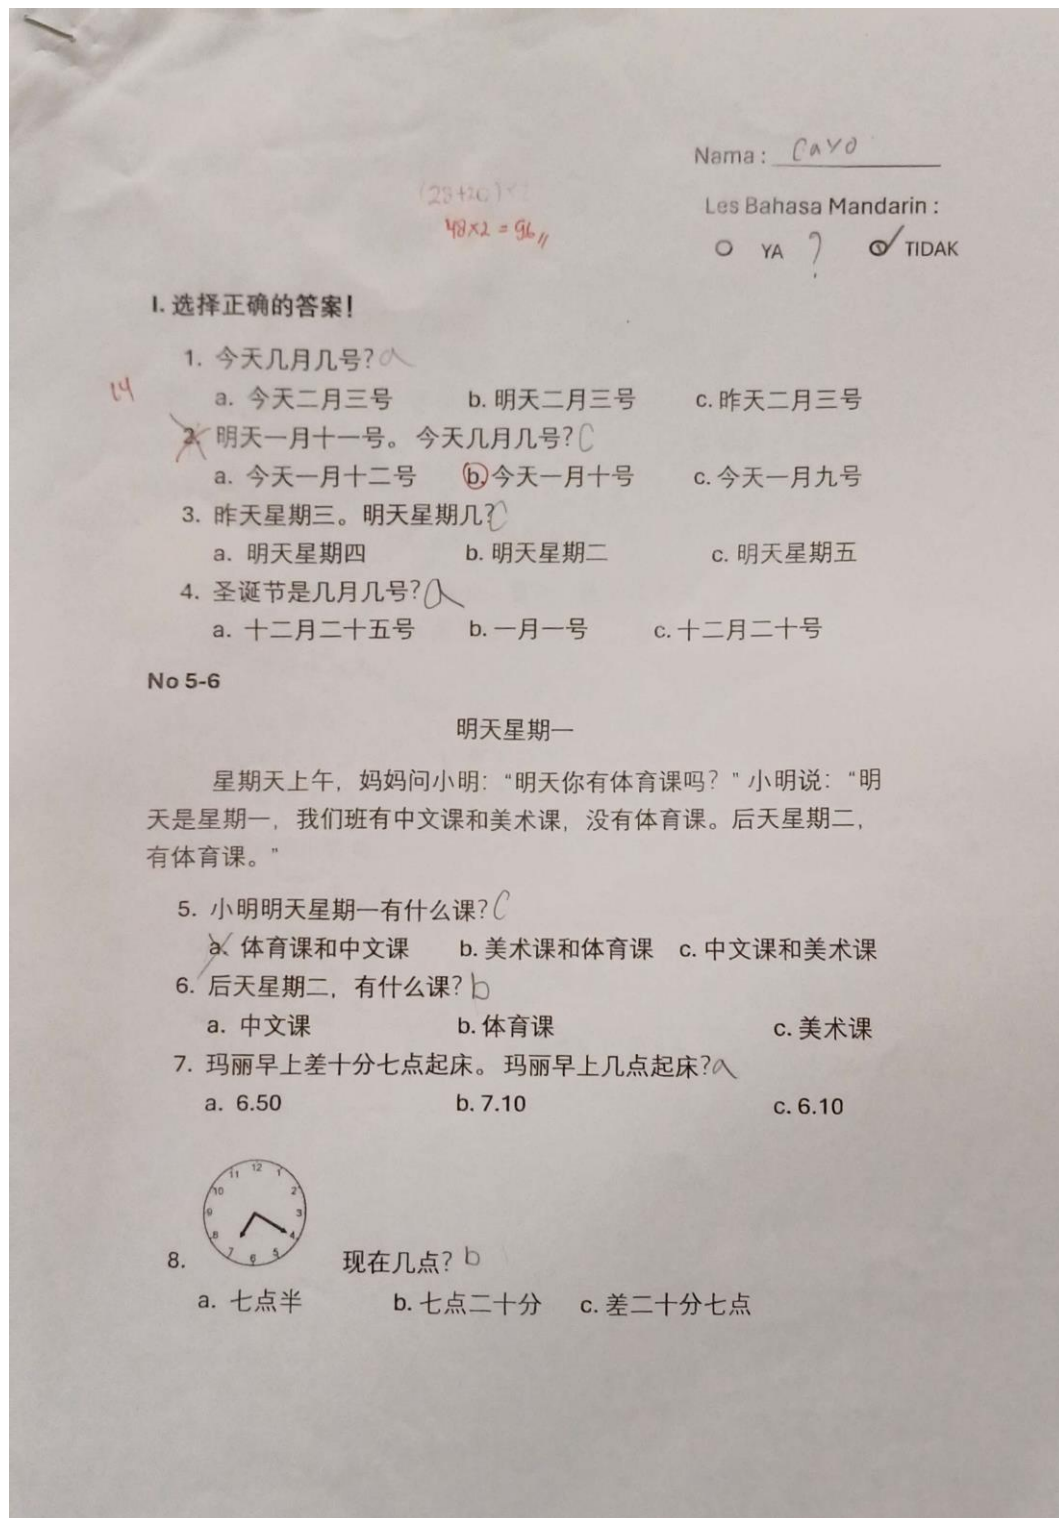 Nama : Cayo
(28+20)×2
Les Bahasa Mandarin :
48×2 = 96 //
YA ? TIDAK
I. 选择正确的答案!
1. 今天几月几号? a
14
a. 今天二月三号 b. 明天二月三号 c. 昨天二月三号
2. 明天一月十一号。 今天几月几号? C
a. 今天一月十二号 b. 今天一月十号 c. 今天一月九号
3. 昨天星期三。明天星期几? C
a. 明天星期四 b. 明天星期二 c. 明天星期五
4. 圣诞节是几月几号? a
a. 十二月二十五号 b. 一月一号 c. 十二月二十号
No 5-6
明天星期一
星期天上午，妈妈问小明：“明天你有体育课吗？”小明说：“明
天是星期一，我们班有中文课和美术课，没有体育课。后天星期二，
有体育课。”
5. 小明明天星期一有什么课? C
a. 体育课和中文课 b. 美术课和体育课 c. 中文课和美术课
6. 后天星期二，有什么课? b
a. 中文课 b. 体育课 c. 美术课
7. 玛丽早上差十分七点起床。 玛丽早上几点起床? a
a. 6.50 b. 7.10 c. 6.10
12
11 1
10 2
9 3
8 4
7 6 5
8. 现在几点? b
a. 七点半 b. 七点二十分 c. 差二十分七点